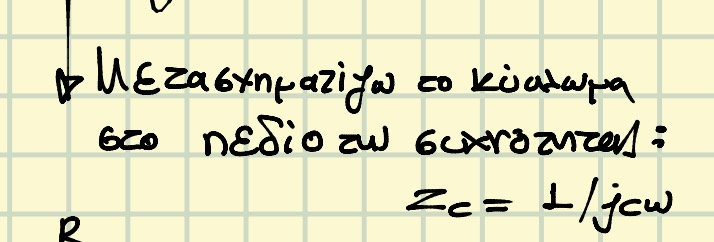 Μετασχηματίζω το κύκλωμα
στο πεδίο των συχνοτήτων:
Zc = 1/jcω
R